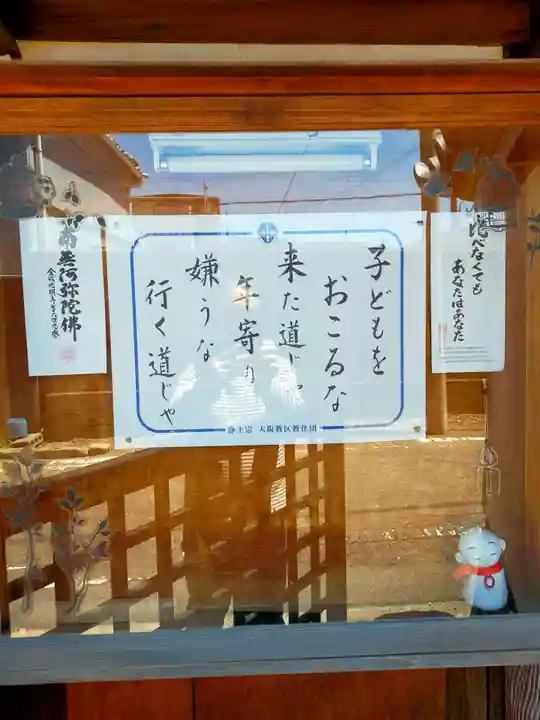 比べなくても
あなたはあなた
子どもを
おこるな
来た道じゃ
年寄り
嫌うな
行く道じゃ
浄土宗 大阪教区教化団
南無阿弥陀佛